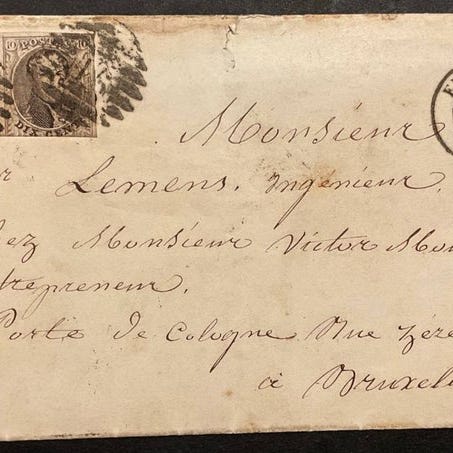 10 POSTES 10
DIX CEN
Monsieur
Lemens, Ingénieur,
hez Monsieur Victor Mon
trepreneur.
Porte de Cologne Rue
à Bruxel